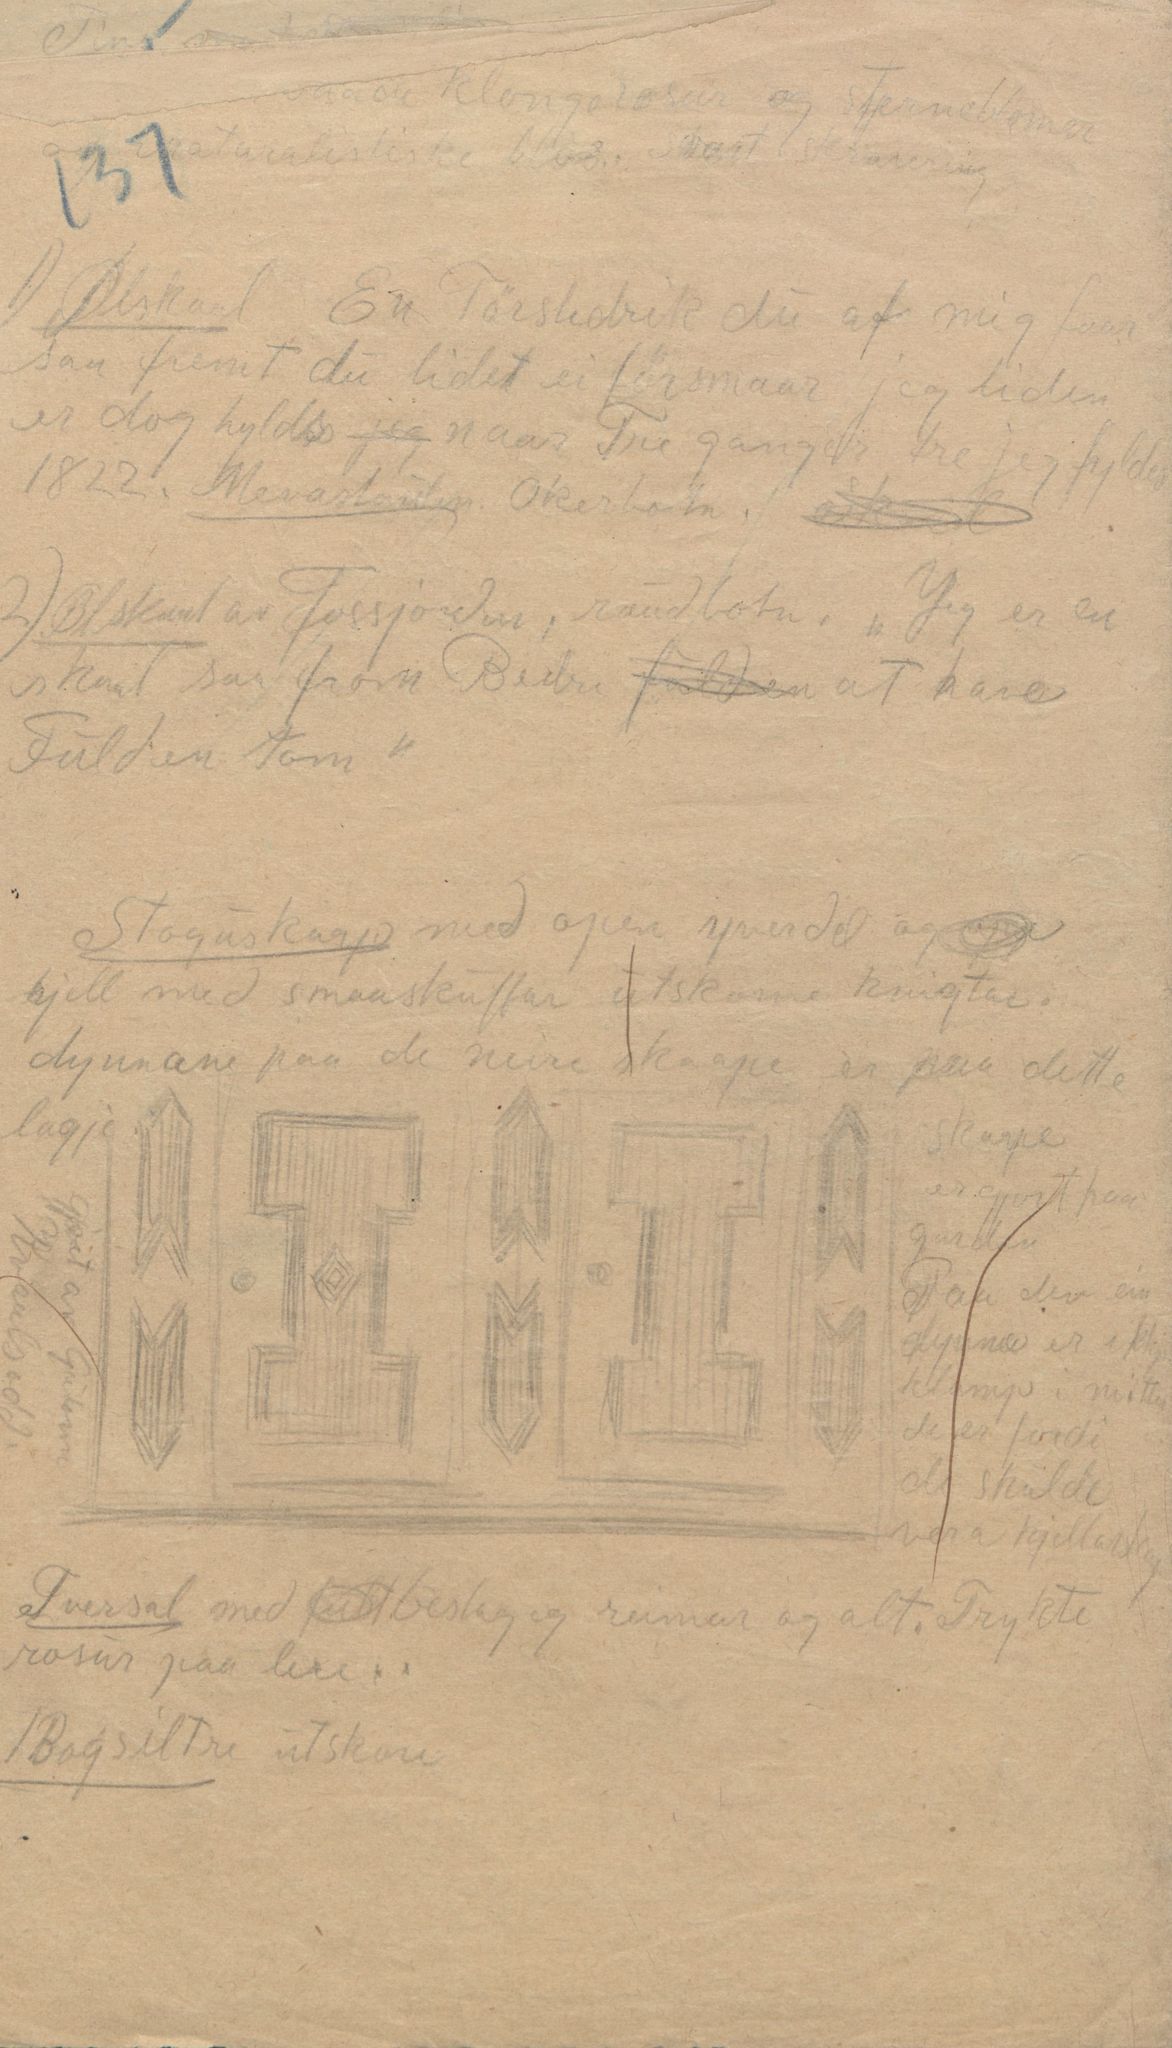 Tin.
maade klongerosur og stjerneblomar
og naturalistiske Svart skravering
137
1) Ølskaal En Törstedrik du af mig faar
saa fremt du lidet ei försmaar jeg liden
er dog hyldes jeg naar Tre ganger tre jeg fyldes
1822. Okerbotn.
2) Ølskaal av Fossjorden, raudbotn. „Yeg er en
skaal saa from Bedre fulden at have
Fulden tom "
Stoguskaap med open yverdel og
hjell med smaaskuffur utskorne knigtar.
dynnane paa de neire skaape er paa dette
lagje
skaape
er gjort paa
garden
Paa den ein
dynna er i
klump i mitten
de er fordi
de skulde
vera kjellarskap
Gjort av Gu
Tversal med beslag og reimar og alt. Trykte
rosur paa lere..
1 Bogsiltre utskore